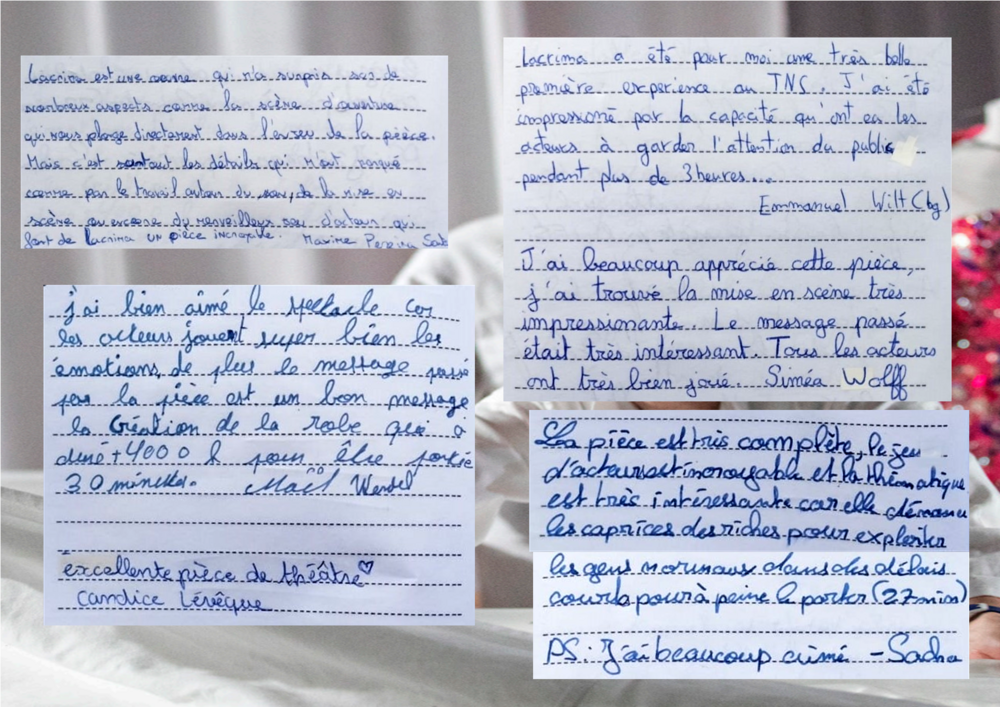 Lacrima est une œuvre qui m'a surpris sur de
nombreux aspects comme la scène d'ouverture
qui nous plonge directement dans l'univers de la pièce.
Mais c'est surtout les détails qui m'ont marqué
comme par le travail autour du son, de la mise en
scène ou encore du merveilleux jeu d'acteur qui
font de Lacrima un pièce incroyable. Maxime Pereira
j'ai bien aimé le spectacle car
les acteurs jouent super bien les
émotions, de plus le message passé
par la pièce est un bon message
la Création de la robe qui a
duré +4000 h pour être portée
30 minutes. Maël Wendel
excellente pièce de théâtre♡
Candice Lévêque
Lacrima a été pour moi une très belle
première experience au TNS. J'ai été
impressioné par la capacité qu'ont eu les
acteurs à garder l'attention du public
pendant plus de 3 heures...
Emmanuel Wilt (bg)
J'ai beaucoup apprécié cette pièce,
j'ai trouvé la mise en scène très
impressionante. Le message passé
était très intéressant. Tous les acteurs
ont très bien joué. Siméa Wolff
La pièce est très complète, le jeu
d'acteur est incroyable et la thématique
est très intéressante car elle dénonce
les caprices des riches pour exploiter
les gens normaux dans des délais
courts pour à peine le porter (27 min)
PS : J'ai beaucoup aimé - Sacha